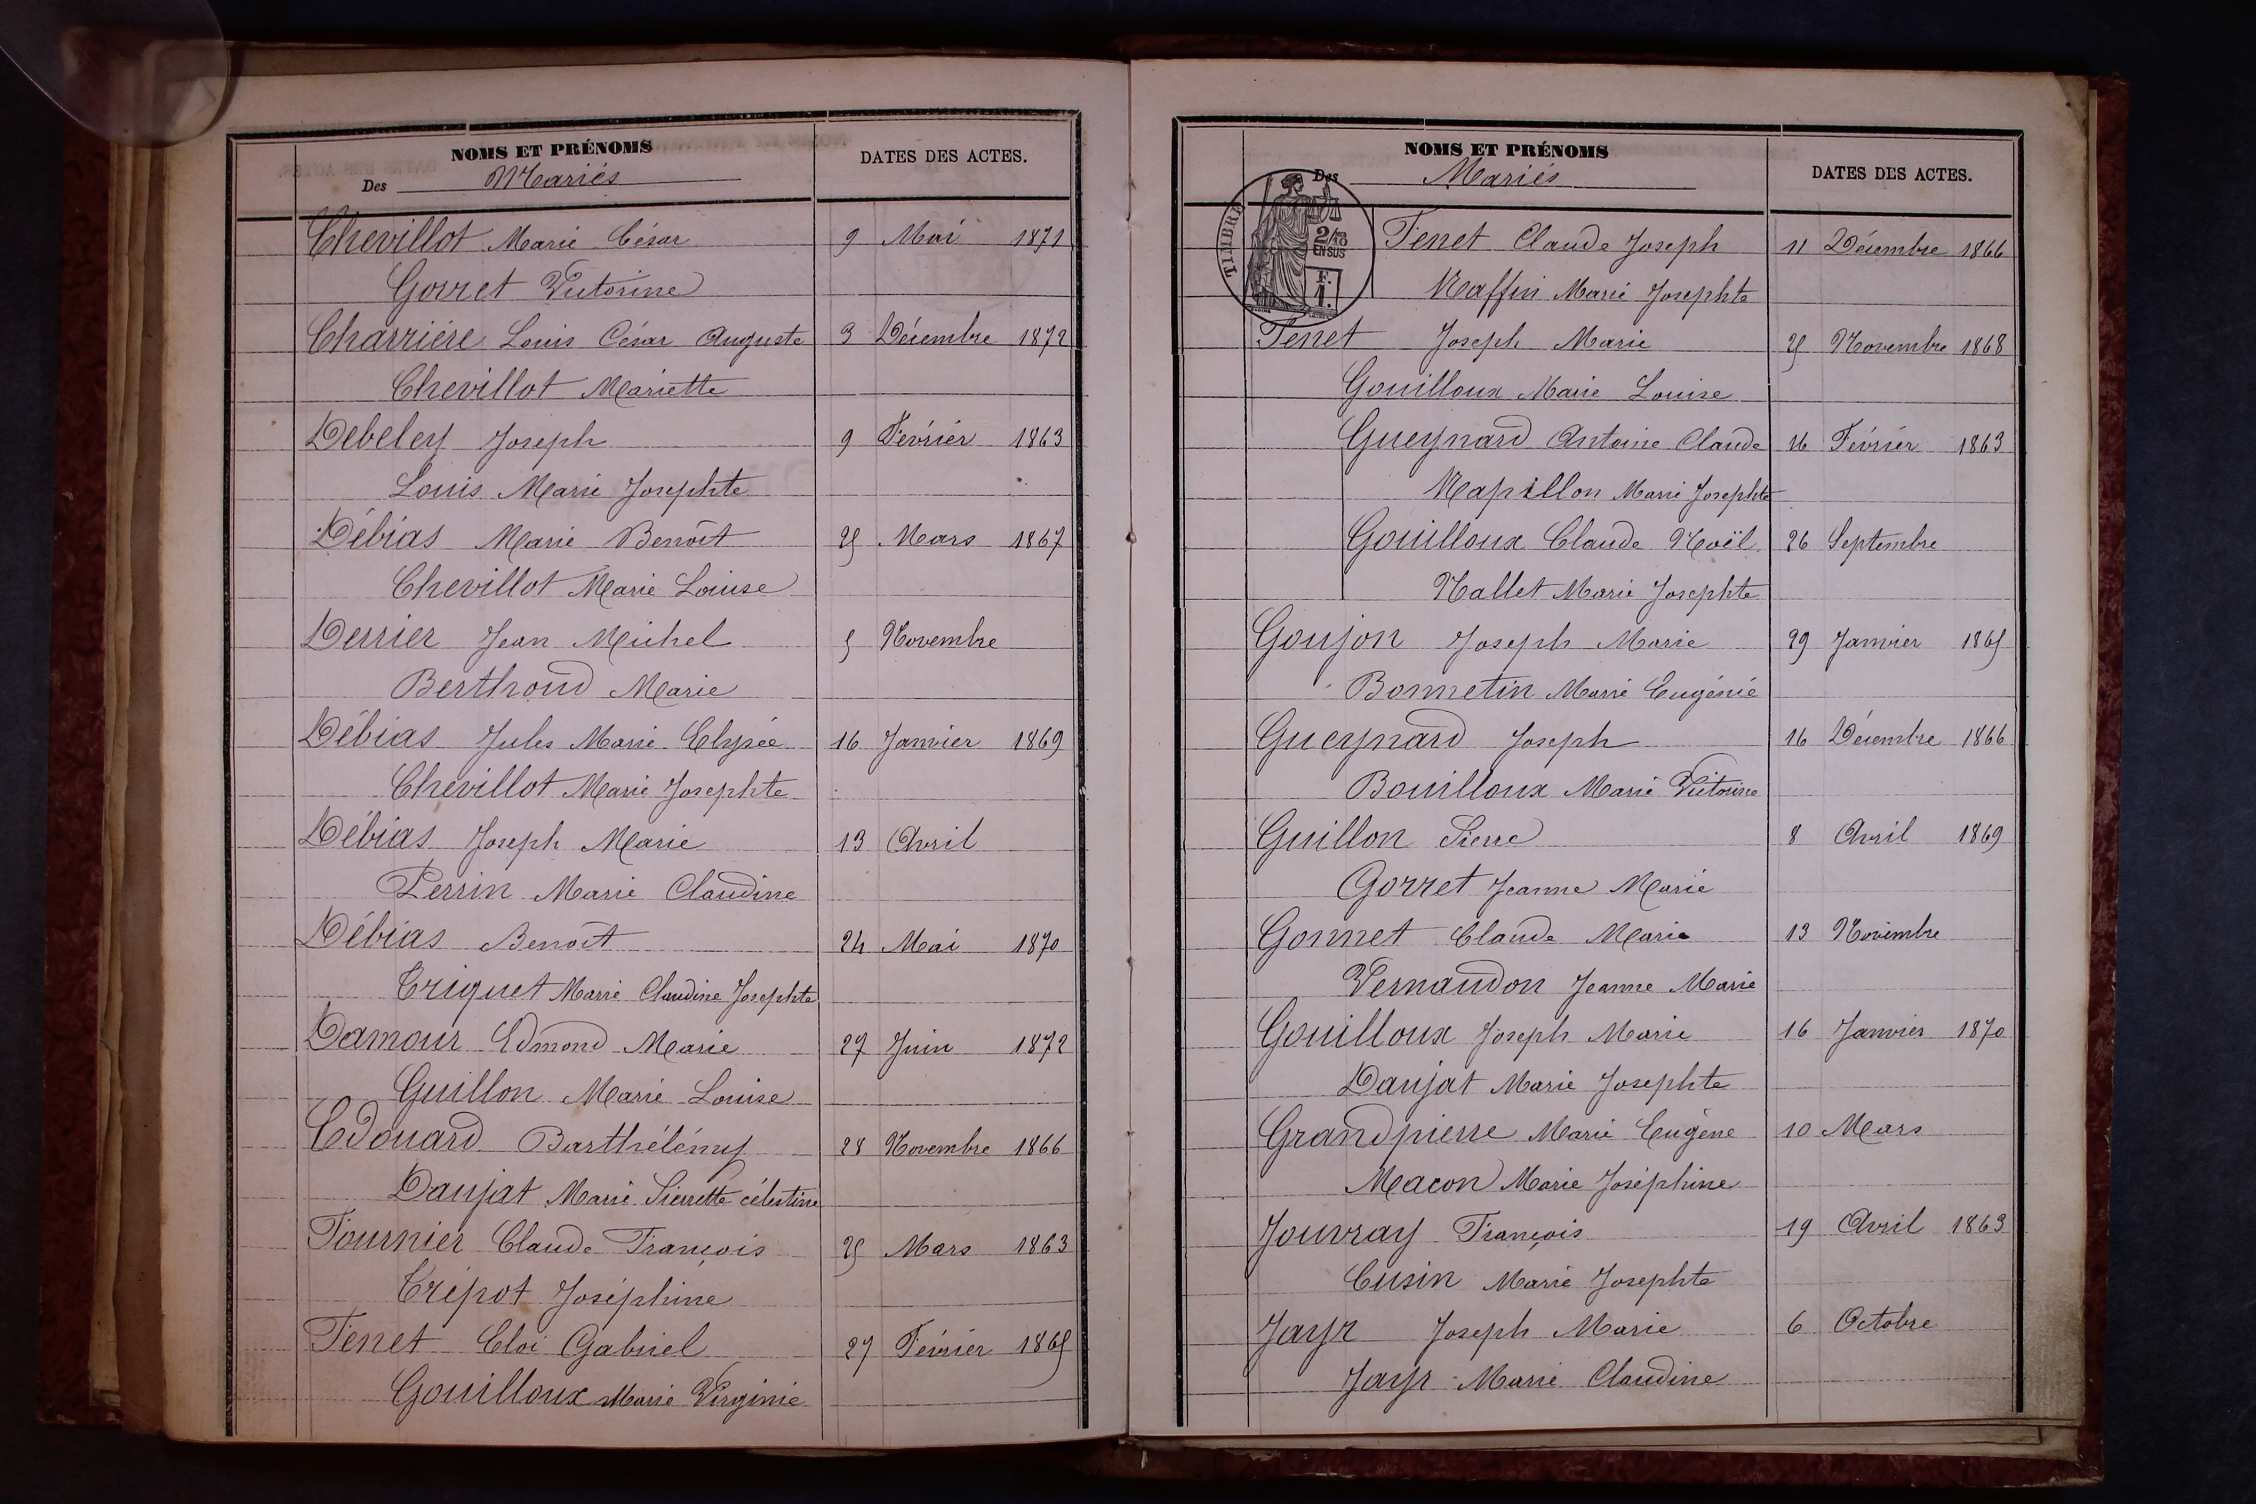 NOMS ET PRÉNOMS
Des Mariés
DATES DES ACTES.
Chevillot Marie César 9 Mai 1871
Gorret Victorine
Charriére Louis César Auguste 3 Décembre 1872
Chevillot Mariette
Debeley Joseph 9 Février 1863
Louis Marie Josephte
Débias Marie Benoît 25 Mars 1867
Chevillot Marie Louise
Derrier Jean Michel 5 Novembre
Berthoud Marie
Débias Jules Marie Elysée 16 Janvier 1869
Chevillot Marie Josephte
Débias Joseph Marie 13 Avril
Perrin Marie Claudine
Débias Benoît 24 Mai 1870
Criquet Marie Claudine Josephte
Damour Edmond Marie 27 Juin 1872
Guillon Marie Louise
Edouard Barthélémy 28 Novembre 1866
Daujat Marie Pierrette célestine
Fournier Claude François 25 Mars 1863
Crépot Joséphine
Fenet Eloi Gabriel 27 Février 1865
Gouilloux Marie Virginie
NOMS ET PRÉNOMS
Des Mariés
DATES DES ACTES.
TIMBRE
2/10
EN SUS
F.
1.
Fenet Claude Joseph 11 Décembre 1866
Raffin Marie Josephte
Fenet Joseph Marie 25 Novembre 1868
Gouilloux Marie Louise
Gueynard Antoine Claude 16 Février 1863
Rapillon Marie Josephte
Gouilloux Claude Noël 26 Septembre
Nallet Marie Josephte
Goujon Joseph Marie 29 Janvier 1865
Bonnetin Marie Eugénie
Gueynard Joseph 16 Décembre 1866
Bouilloux Marie Victorine
Guillon Pierre 8 Avril 1869
Gorret Jeanne Marie
Gonnet Claude Marie 13 Novembre
Vernaudon Jeanne Marie
Gouilloux Joseph Marie 16 Janvier 1870
Daujat Marie Josephte
Grandpierre Marie Eugène 10 Mars
Macon Marie Joséphine
Jouvray François 19 Avril 1863
Cusin Marie Josephte
Jayr Joseph Marie 6 Octobre
Jayr Marie Claudine